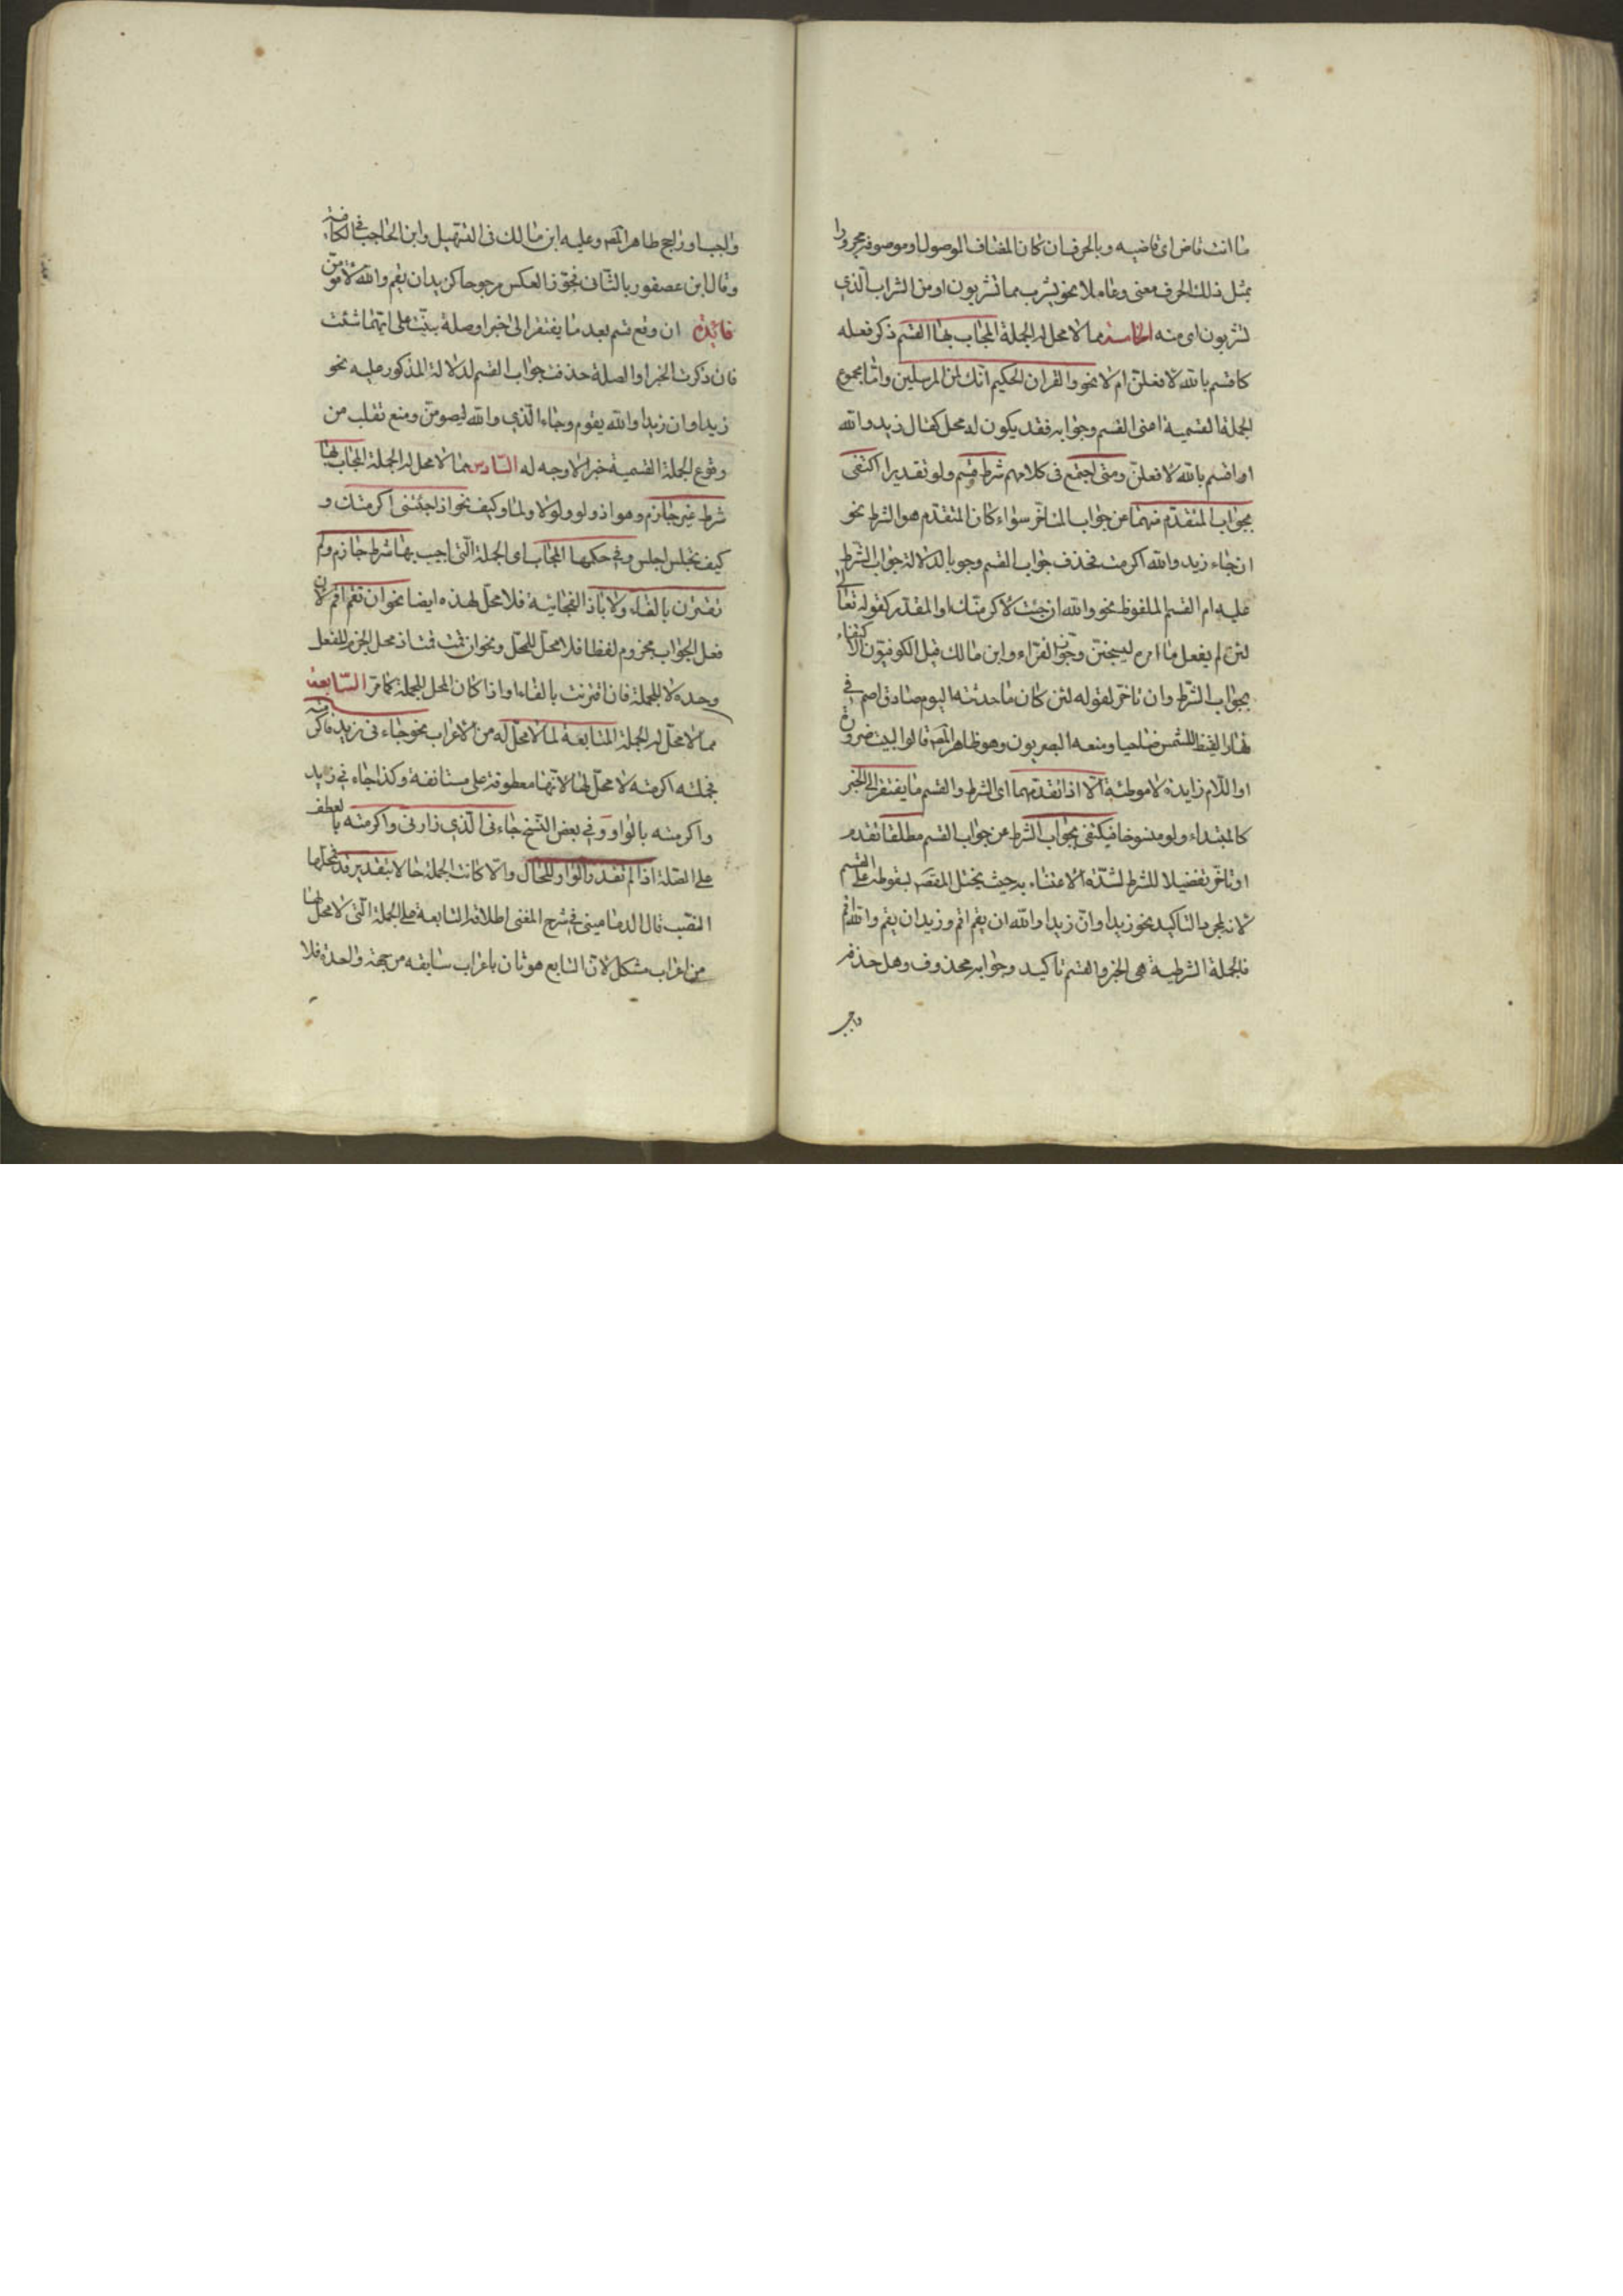 ما انت قاض اى قاضيه وبالحرف ان كان المضاف للموصول او موصوفه مجرورا
بمثل ذلك الحرف معنى وعاملا نحو يشرب مما تشربون او من الشراب الذي
تشربون اى منه الخامسة مما لا محل له الجملة المجاب بها القسم ذكر فعله
كاقسم بالله لافعلن ام لا نحو والقران الحكيم انك لمن المرسلين واما مجموع
الجملة القسمية اعنى القسم وجوابه فقد يكون له محل كقال زيد والله
او اقسم بالله لافعلن ومتى اجتمع فى كلامهم شرط وقسم ولو تقديرا اكتفى
بجواب المتقدم منهما عن جواب المتاخر سواء كان المتقدم هو الشرط نحو
ان جاء زيد والله اكرمته فحذف جواب القسم وجوبا لدلالة جواب الشرط
عليه ام القسم الملفوظ نحو والله ان جئت لاكرمنك او المقدر كقوله تعالى
لئن لم يفعل ما امره ليسجنن وجوز الفراء وابن مالك قيل الكوفيون الاكتفاء
بجواب الشرط وان تاخر لقوله لئن كان ما حدثته اليوم صادقا اصم في
نهار القيظ للشمس ضاحيا ومنعه البصريون وهو ظاهر المص قالوا البيت ضرورة
او اللام زايدة لا موطئة الا اذا تقدمهما اى الشرط والقسم ما يفتقر الى الخبر
كالمبتداء ولو منسوخا فيكتفى بجواب الشرط عن جواب القسم مطلقا تقدم
او تاخر تفضيلا للشرط لشدة الاعتناء به حيث يختل المقصد بسقوطه على القسم
لانه لمجرد التاكيد نحو زيد او ان زيدا والله ان يقم اقم وزيد ان يقم والله اقم
فالجملة الشرطية هى الخبر والقسم تاكيد وجوابه محذوف وهل حذفه
واجب
واجب او راجح ظاهر المص وعليه ابن مالك فى التسهيل وابن الحاجب في الكافية
وقال ابن عصفور بالثانى فجوز العكس مرجوحا كزيد ان يقم والله لاقومن
فائدة ان وقع قسم بعد ما يفتقر الى خبر او صلة بنيت على ايهما شئت
فان ذكرت الخبر او الصلة حذفت جواب القسم لدلالة المذكور عليه نحو
زيد او ان زيدا والله يقوم وجاء الذي والله ليصومن ومنع ثعلب من
وقوع الجملة القسمية خبرا لا وجه له السادس مما لا محل له الجملة المجاب بها
شرط غير جازم وهو اذ ولو ولولا ولما وكيف نحو اذ اجئتنى اكرمتك و
كيف تجلس اجلس وفي حكمها المجاب اى الجملة التى اجيب بها شرط جازم ولم
تقترن بالفاء ولا باذا الفجائية فلا محل لهذه ايضا نحو ان تقم اقم لان
فعل الجواب مجزوم لفظا فلا محل للمحل ونحو ان قمت قمت اذ محل الجزم للفعل
وحده لا للجملة فان اقترنت بالفاء او اذا كان المحل للجملة كما مر السابعة
مما لا محل له الجملة التابعة لما لا محل له من الاعراب نحو جاء نى زيد فاكرمته
فجملة اكرمته لا محل لها لانها معطوفة على مستانفة وكذا جاء نى زيد
واكرمته بالواو وفي بعض النسخ جاء نى الذي زارنى واكرمته بالعطف
على الصلة اذا لم تقدر الواو للحال والا كانت الجملة حالا بتقدير قد فمحلها
النصب قال الدمامينى في شرح المغنى اطلاقه التابعة على الجملة التى لا محل لها
من اعراب مشكل لان التابع هو ثان باعراب سابقه من جهة واحدة فلا